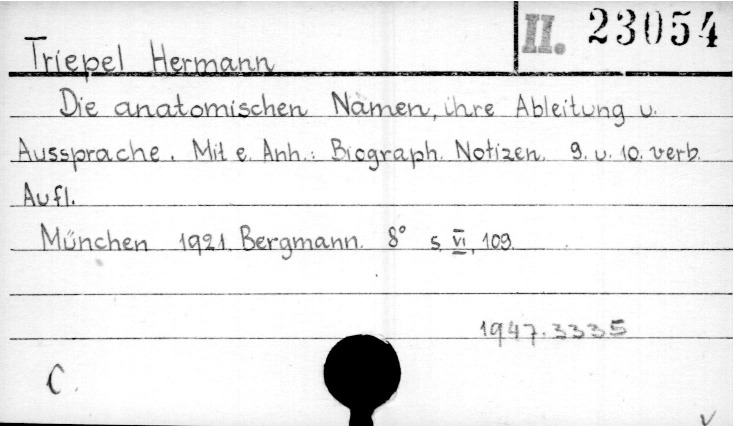 II. 23054
Triepel Hermann
Die anatomischen Namen, ihre Ableitung u.
Aussprache. Mit e. Anh.: Biograph. Notizen. 9. u. 10. verb.
Aufl.
München 1921. Bergmann. 8° s. VI, 109.
1947. 3335
C.
v